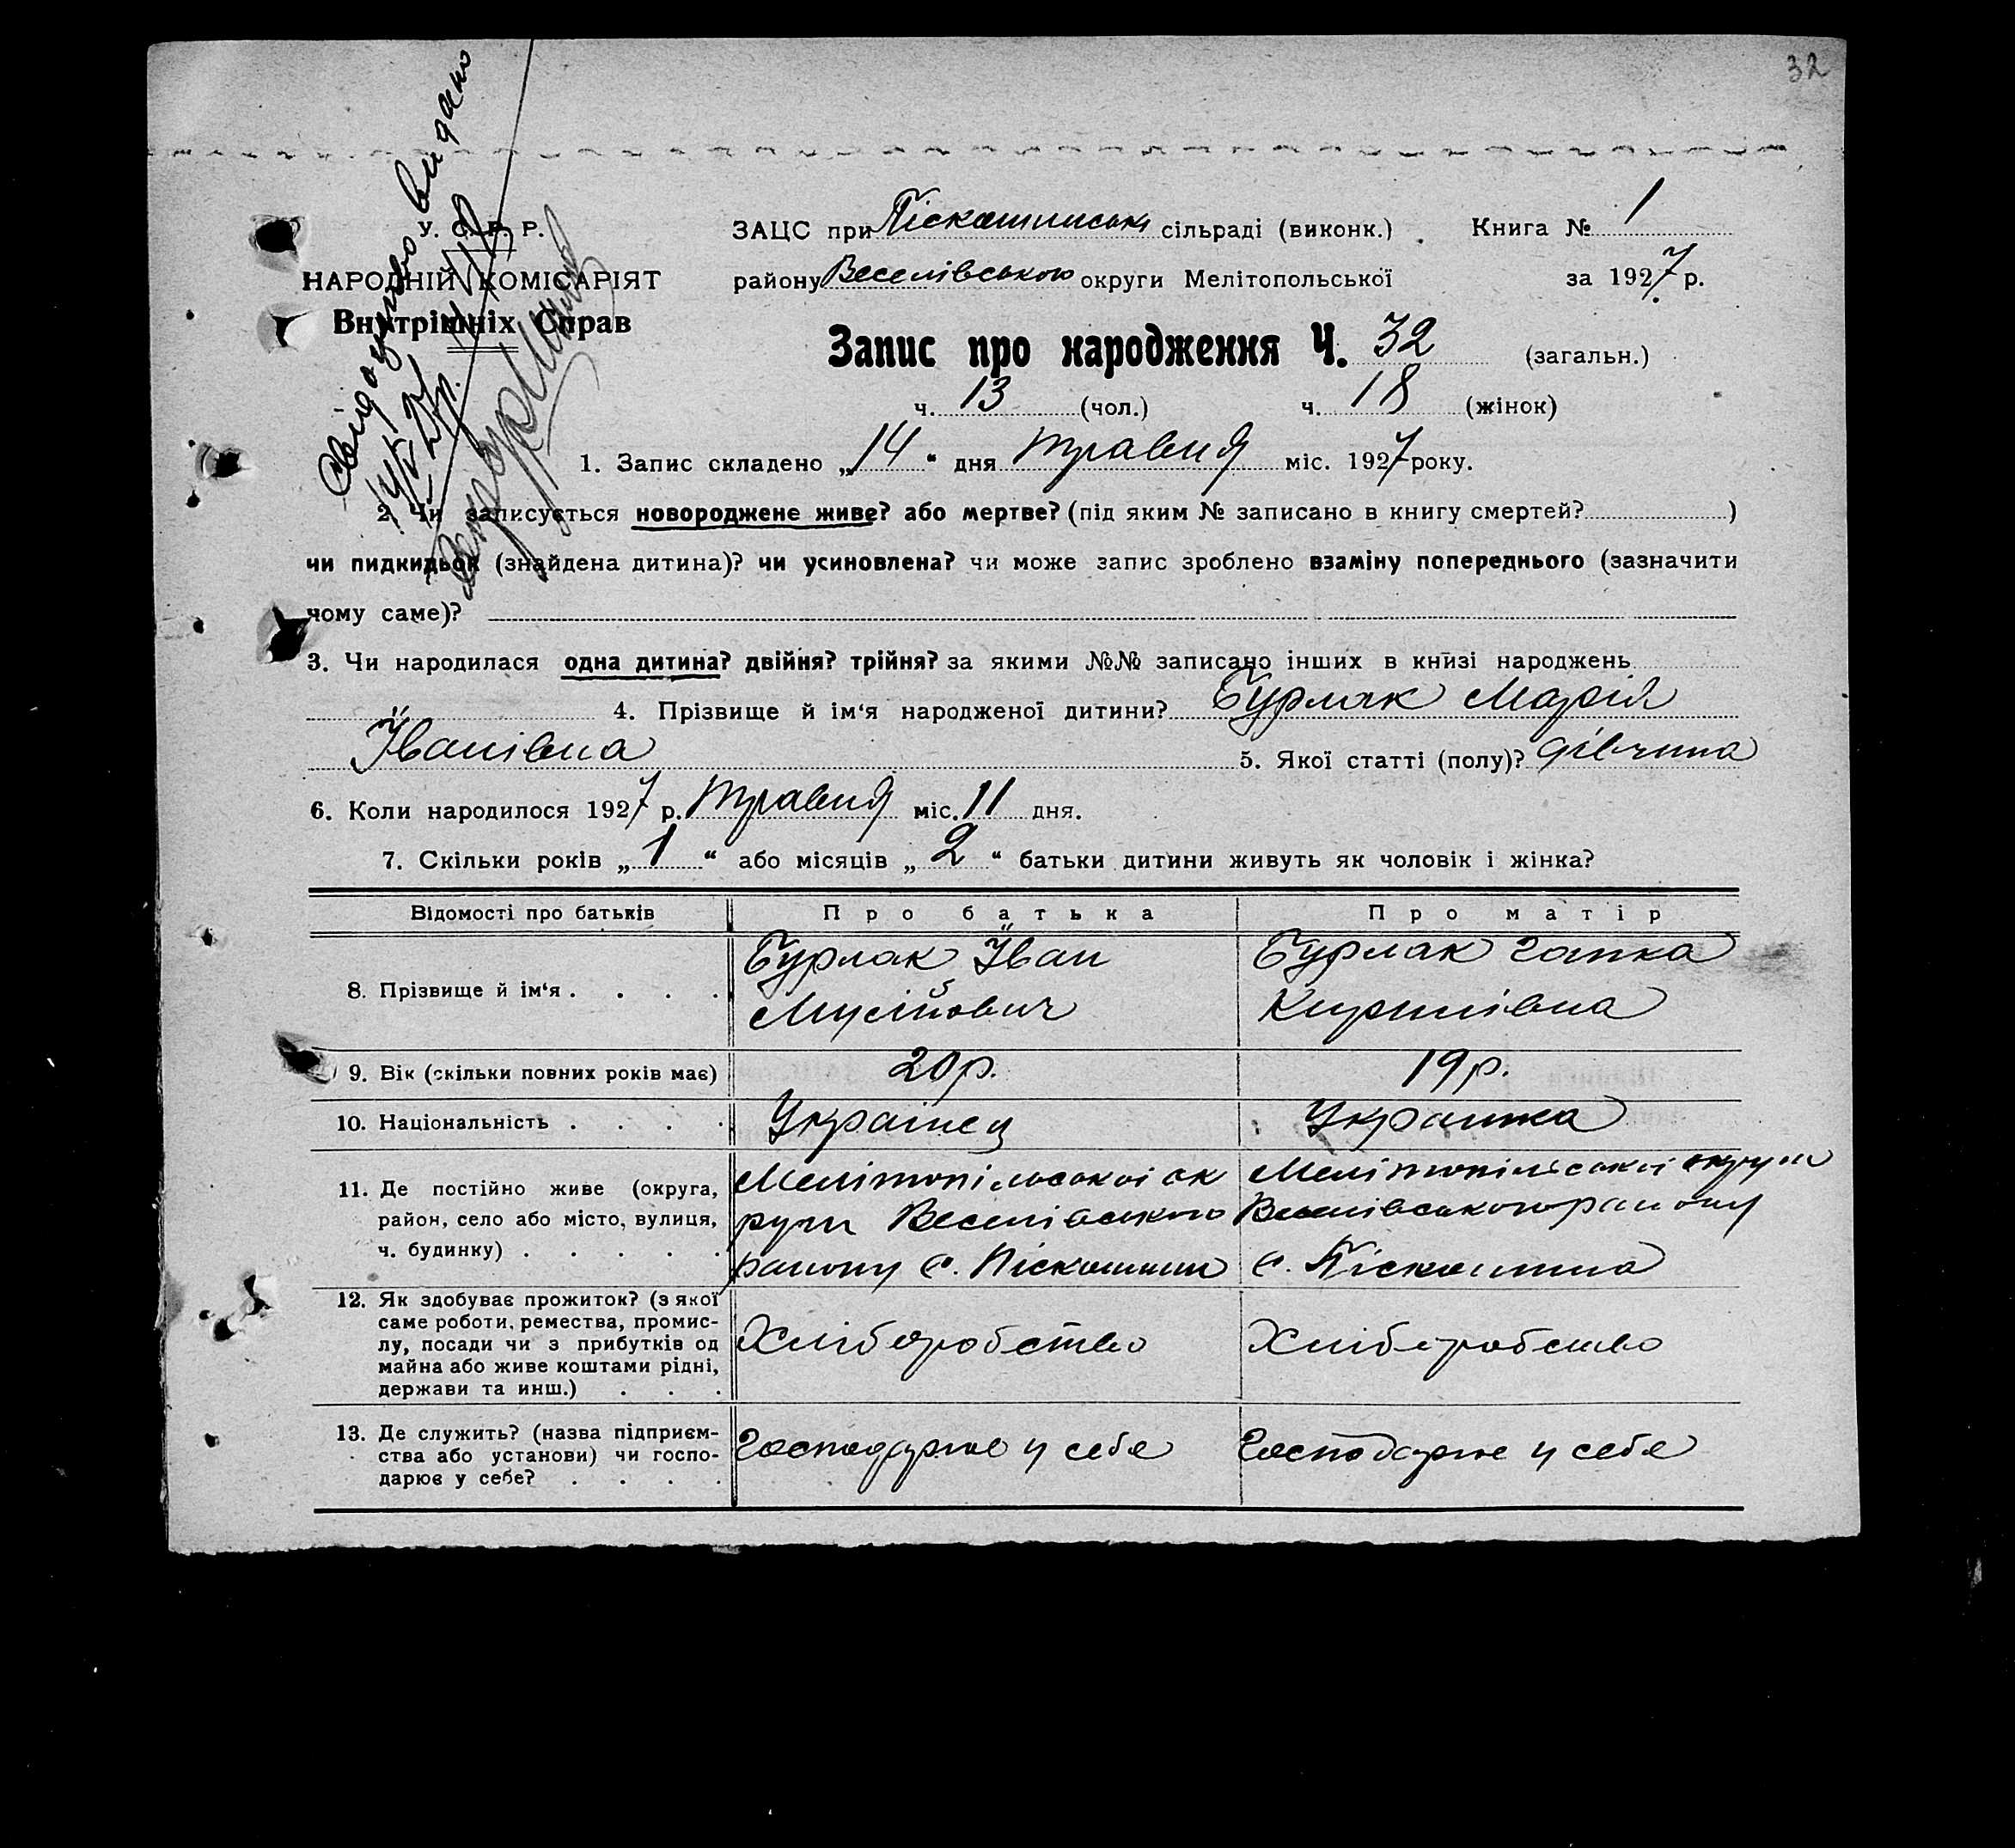 32
Свідоцтво видано
14/V 27р.
У. С. Р. Р.
НАРОДНІЙ КОМІСАРІЯТ
Внутрішніх Справ
ЗАЦС при Піскошинській сільраді (виконк.) Книга № 1
району Веселівського округи Мелітопольської за 1927 р.
Запис про народження Ч. 32 (загальн.)
ч. 13 (чол.) ч. 18 (жінок)
1. Запис складено „14“ дня травня міс. 1927 року.
2. Чи записується новороджене живе? або мертве? (під яким № записано в книгу смертей? )
чи пидкидьок (знайдена дитина)? чи усиновлена? чи може запис зроблено взаміну попереднього (зазначити
чому саме)?
3. Чи народилася одна дитина? двійня? трійня? за якими №№ записано інших в книзі народжень
4. Прізвище й ім‘я народженої дитини? Бурлак Марія
Їванівна 5. Якої статті (полу)? дівчина
6. Коли народилося 1927 р. травня міс. 11 дня.
7. Скільки років „1“ або місяців „2“ батьки дитини живуть як чоловік і жінка?
Відомості про батьків Про батька Про матір
8. Прізвище й ім‘я . . . . Бурлак Їван Бурлак Гапка
Мусійович Кирилівна
9. Вік (скільки повних років має) 20р. 19р.
10. Національність . . . . Українец Украінка
11. Де постійно живе (округа, Мелітопільськоі ок Мелітопільськоі округи
район, село або місто, вулиця, руги Веселівського Веселівського району
ч. будинку) . . . . . району с. Піскошини с. Піскошина
12. Як здобуває прожиток? (з якої
саме роботи, ремества, промис-
лу, посади чи з прибутків од Хліборобство Хліборобство
майна або живе коштами рідні,
держави та инш.) . . .
13. Де служить? (назва підприєм-
ства або установи) чи госпо- Господарює у себе Господарює у себе
дарює у себе? . . . .